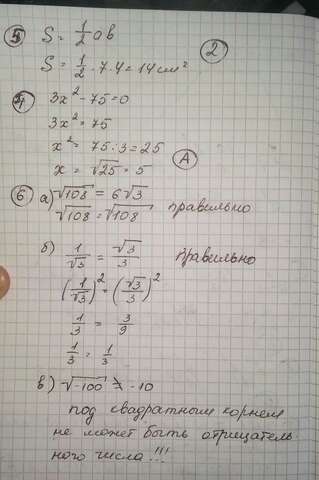 5 S = 1/2 ab
S = 1/2 · 7 · 4 = 14 см² 2
4 3x² - 75 = 0
3x² = 75
x² = 75 : 3 = 25
x = √25 = 5 A
6 а) √108 = 6√3
√108 = √108 правильно
б) 1/√3 = √3/3 правильно
(1/√3)² = (√3/3)²
1/3 = 3/9
1/3 = 1/3
в) √-100 ≠ -10
под квадратным корнем
не может быть отрицатель-
ного числа!!!